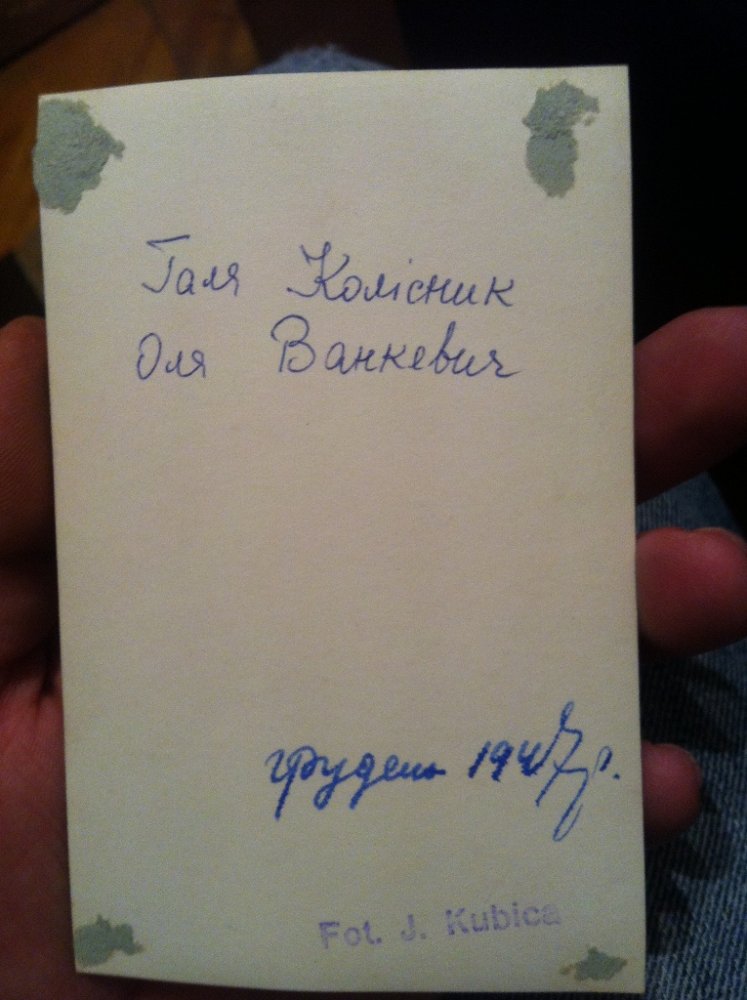 Галя Колісник
Оля Ванкевич
грудень 1947 р.
Fot. J. Kubica